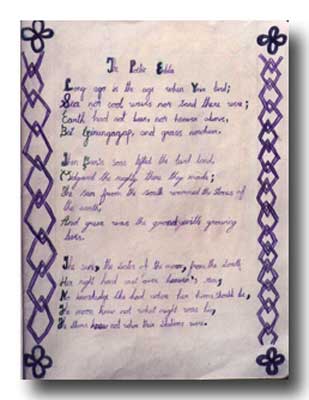 The Poetic Edda
Long ago in the age when Ymir lived;
Sea nor cool waves nor sand there were;
Earth had not been, nor heaven above,
But Ginungagap, and grass nowhere.
Then Bur's sons lifted the level land,
Midgard the mighty there they made;
The sun from the south warmed the stones of
the earth,
And green was the ground with growing
leeks.
The sun, the sister of the moon, from the south
Her right hand cast over heaven's rim;
No knowledge she had where her home should be,
The moon knew not what might was his,
The stars knew not where their stations were.